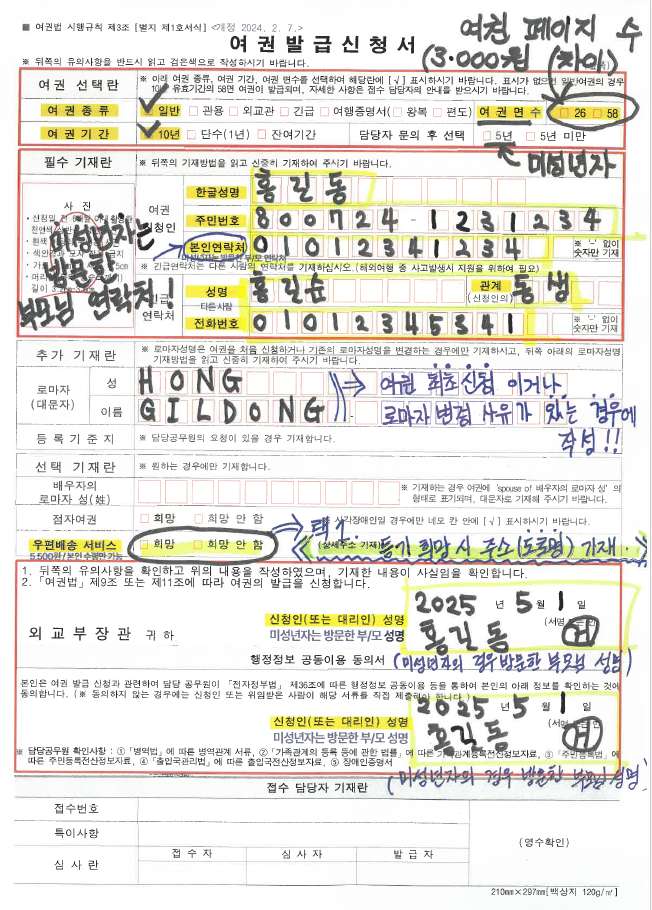 ■ 여권법 시행규칙 제3조 [별지 제1호서식] <개정 2024. 2. 7.>
여권발급신청서
여권 페이지 수
(3.000원 (차이)
※ 뒤쪽의 유의사항을 반드시 읽고 검은색으로 작성하시기 바랍니다.
여권 선택란
※ 아래 여권 종류, 여권 기간, 여권 면수를 선택하여 해당란에 [√] 표시하시기 바랍니다. 표시가 없으면 일반여권의 경우
10년 유효기간의 58면 여권이 발급되며, 자세한 사항은 접수 담당자의 안내를 받으시기 바랍니다.
여권종류 일반 관용 외교관 긴급 여행증명서( 왕복 편도) 여권 면수 26 58
여권기간 10년 단수(1년) 잔여기간 담당자 문의 후 선택 5년 5년 미만
미성년자
필수 기재란
※ 뒤쪽의 기재방법을 읽고 신중히 기재하여 주시기 바랍니다.
사 진
미성년자는
방문한
부모님 연락처!
여권
신청인
한글성명 홍길동
주민번호 800724-1231234
본인연락처 01012341234 ※ '-' 없이 숫자만 기재
미성년자는 방문한 부/모 연락처
※ 긴급연락처는 다른 사람의 연락처를 기재하십시오. (해외여행 중 사고발생시 지원을 위하여 필요)
긴급
연락처
성명 홍길순 관계 (신청인의) 동생
다른사람
전화번호 01012345341 ※ '-' 없이 숫자만 기재
추가 기재란
※ 로마자성명은 여권을 처음 신청하거나 기존의 로마자성명을 변경하는 경우에만 기재하시고, 뒤쪽 아래의 로마자성명
기재방법을 읽고 신중히 기재하여 주시기 바랍니다.
로마자
(대문자)
성 HONG
이름 GILDONG
여권 최초신청 이거나
로마자 변경 사유가 있는 경우에
작성!!
등록기준지 ※ 담당공무원의 요청이 있을 경우 기재합니다.
선택 기재란 ※ 원하는 경우에만 기재합니다.
배우자의
로마자 성(姓)
※ 기재하는 경우 여권에 'spouse of 배우자의 로마자 성' 의
형태로 표기되며, 대문자로 기재해 주시기 바랍니다.
점자여권 희망 희망 안 함 ※ 시각장애인일 경우에만 네모 칸 안에 [√] 표시하시기 바랍니다.
택1
우편배송 서비스 희망 희망 안 함 (상세주소 기재)
5,500원 / 본인 수령만 가능
등기 희망 시 주소(도로명) 기재
1. 뒤쪽의 유의사항을 확인하고 위의 내용을 작성하였으며, 기재한 내용이 사실임을 확인합니다.
2. 「여권법」제9조 또는 제11조에 따라 여권의 발급을 신청합니다.
2025 년 5 월 1 일
외교부장관 귀하
신청인(또는 대리인) 성명 홍길동
미성년자는 방문한 부/모 성명
행정정보 공동이용 동의서 (미성년자의 경우 방문한 부모님 성명)
본인은 여권 발급 신청과 관련하여 담당 공무원이 「전자정부법」 제36조에 따른 행정정보 공동이용 등을 통하여 본인의 아래 정보를 확인하는 것에
동의합니다. (※ 동의하지 않는 경우에는 신청인 또는 위임받은 사람이 해당 서류를 직접 제출해야 합니다.)
2025 년 5 월 1 일
신청인(또는 대리인) 성명 홍길동
미성년자는 방문한 부/모 성명
※ 담당공무원 확인사항 : ①「병역법」에 따른 병역관계 서류, ②「가족관계의 등록 등에 관한 법률」에 따른 가족관계등록전산정보자료, ③「주민등록법」에
따른 주민등록전산정보자료, ④「출입국관리법」에 따른 출입국전산정보자료, ⑤ 장애인증명서
(미성년자의 경우 방문한 부모님 성명)
접수 담당자 기재란
접수번호
특이사항
심 사 란
접 수 자 심 사 자 발 급 자
(영수확인)
210mm×297mm[백상지 120g/㎡]